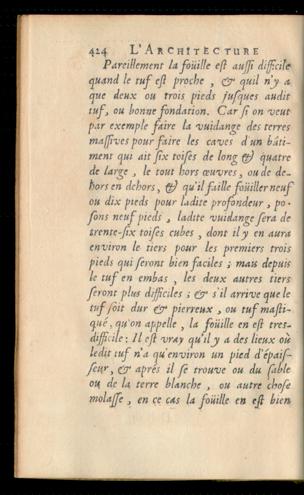 424 L'ARCHITECTURE
Pareillement la foüille est aussi difficile
quand le tuf est proche, & quil n'y a
que deux ou trois pieds jusques audit
tuf, ou bonne fondation. Car si on veut
par exemple faire la vuidange des terres
massives pour faire les caves d'un bâti-
ment qui ait six toises de long & quatre
de large, le tout hors œuvres, ou de de-
hors en dehors, & qu'il faille foüiller neuf
ou dix pieds pour ladite profondeur, po-
sons neuf pieds, ladite vuidange sera de
trente-six toises cubes, dont il y en aura
environ le tiers pour les premiers trois
pieds qui seront bien faciles; mais depuis
le tuf en embas, les deux autres tiers
seront plus difficiles; & s'il arrive que le
tuf soit dur & pierreux, ou tuf masti-
qué, qu'on appelle, la foüille en est tres-
difficile: Il est vray qu'il y a des lieux où
ledit tuf n'a qu'environ un pied d'épais-
seur, & aprés il se trouve ou du sable
ou de la terre blanche, ou autre chose
molasse, en ce cas la foüille en est bien